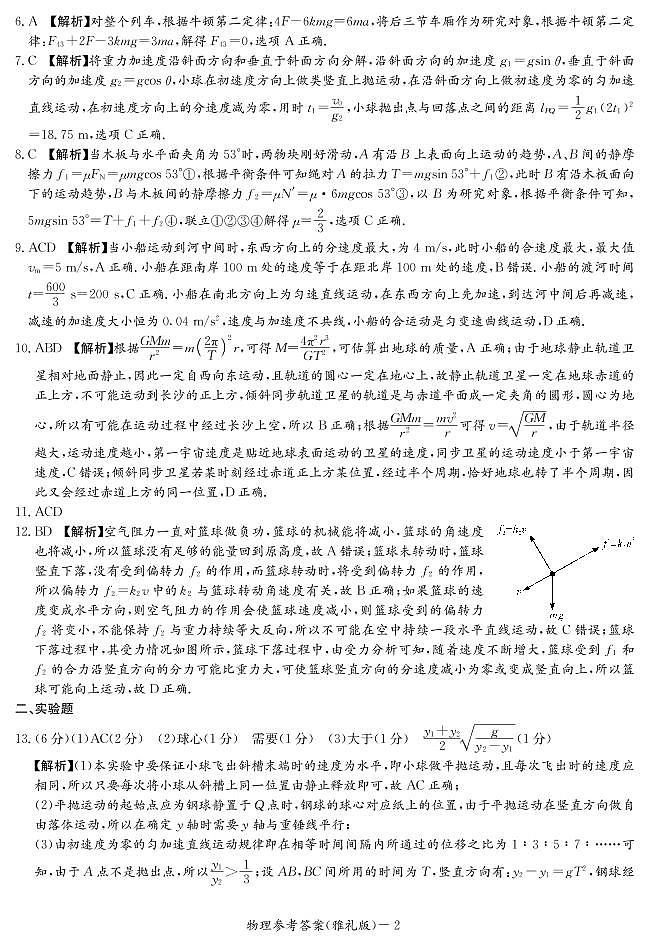 6. A 【解析】对整个列车,根据牛顿第二定律:4F－6kmg=6ma,将后三节车厢作为研究对象,根据牛顿第二定
律:F₄₃＋2F－3kmg=3ma,解得 F₄₃=0,选项 A 正确.
7. C 【解析】将重力加速度沿斜面方向和垂直于斜面方向分解,沿斜面方向的加速度 g₁=gsin θ,垂直于斜面
方向的加速度 g₂=gcos θ,小球在初速度方向上做类竖直上抛运动,在沿斜面方向上做初速度为零的匀加速
直线运动,在初速度方向上的分速度减为零,用时 t₁=v₀/g₂,小球抛出点与回落点之间的距离 l_PQ=1/2 g₁(2t₁)²
=18.75 m,选项 C 正确.
8. C 【解析】当木板与水平面夹角为 53°时,两物块刚好滑动,A 有沿 B 上表面向上运动的趋势,A、B 间的静摩
擦力 f₁=μF_N=μmgcos 53°①,根据平衡条件可知绳对 A 的拉力 T=mgsin 53°＋f₁②,此时 B 有沿木板面向
下的运动趋势,B 与木板间的静摩擦力 f₂=μN′=μ·6mgcos 53°③,以 B 为研究对象,根据平衡条件可知,
5mgsin 53°=T＋f₁＋f₂④,联立①②③④解得 μ=2/3,选项 C 正确.
9. ACD 【解析】当小船运动到河中间时,东西方向上的分速度最大,为 4 m/s,此时小船的合速度最大,最大值
v_m=5 m/s,A 正确.小船在距南岸 100 m 处的速度等于在距北岸 100 m 处的速度,B 错误.小船的渡河时间
t=600/3 s=200 s,C 正确.小船在南北方向上为匀速直线运动,在东西方向上先加速,到达河中间后再减速,
减速的加速度大小恒为 0.04 m/s²,速度与加速度不共线,小船的合运动是匀变速曲线运动,D 正确.
10. ABD 【解析】根据GMm/r²=m(2π/T)²r,可得 M=4π²r³/GT²,可估算出地球的质量,A 正确;由于地球静止轨道卫
星相对地面静止,因此一定自西向东运动,且轨道的圆心一定在地心上,故静止轨道卫星一定在地球赤道的
正上方,不可能运动到长沙的正上方,倾斜同步轨道卫星的轨道是与赤道平面成一定夹角的圆形,圆心为地
心,所以有可能在运动过程中经过长沙上空,所以 B 正确;根据GMm/r²=mv²/r可得 v=√(GM/r),由于轨道半径
越大,运动速度越小,第一宇宙速度是贴近地球表面运动的卫星的速度,同步卫星的运动速度小于第一宇宙
速度,C 错误;倾斜同步卫星若某时刻经过赤道正上方某位置,经过半个周期,恰好地球也转了半个周期,因
此又会经过赤道上方的同一位置,D 正确.
11. ACD
12. BD 【解析】空气阻力一直对篮球做负功,篮球的机械能将减小,篮球的角速度
也将减小,所以篮球没有足够的能量回到原高度,故 A 错误;篮球未转动时,篮球
竖直下落,没有受到偏转力 f₂ 的作用,而篮球转动时,将受到偏转力 f₂ 的作用,
所以偏转力 f₂=k₂v 中的 k₂ 与篮球转动角速度有关,故 B 正确;如果篮球的速
度变成水平方向,则空气阻力的作用会使篮球速度减小,则篮球受到的偏转力
f₂ 将变小,不能保持 f₂ 与重力持续等大反向,所以不可能在空中持续一段水平直线运动,故 C 错误;篮球
下落过程中,其受力情况如图所示,篮球下落过程中,由受力分析可知,随着速度不断增大,篮球受到 f₁ 和
f₂ 的合力沿竖直方向的分力可能比重力大,可使篮球竖直方向的分速度减小为零或变成竖直向上,所以篮
球可能向上运动,故 D 正确.
f₂=k₂v
v
mg
二、实验题
13. (6 分)(1)AC(2 分) (2)球心(1 分) 需要(1 分) (3)大于(1 分) (y₁+y₂)/2 √(g/(y₂−y₁))(1 分)
【解析】(1)本实验中要保证小球飞出斜槽末端时的速度为水平,即小球做平抛运动,且每次飞出时的速度应
相同,所以只要每次将小球从斜槽上同一位置由静止释放即可,故 AC 正确;
(2)平抛运动的起始点应为钢球静置于 Q 点时,钢球的球心对应纸上的位置,由于平抛运动在竖直方向做自
由落体运动,所以在确定 y 轴时需要 y 轴与重锤线平行;
(3)由初速度为零的匀加速直线运动规律即在相等时间间隔内所通过的位移之比为 1∶3∶5∶7∶……可
知,由于 A 点不是抛出点,所以y₁/y₂>1/3;设 AB,BC 间所用的时间为 T,竖直方向有:y₂－y₁=gT²,钢球经
物理参考答案(雅礼版)－2